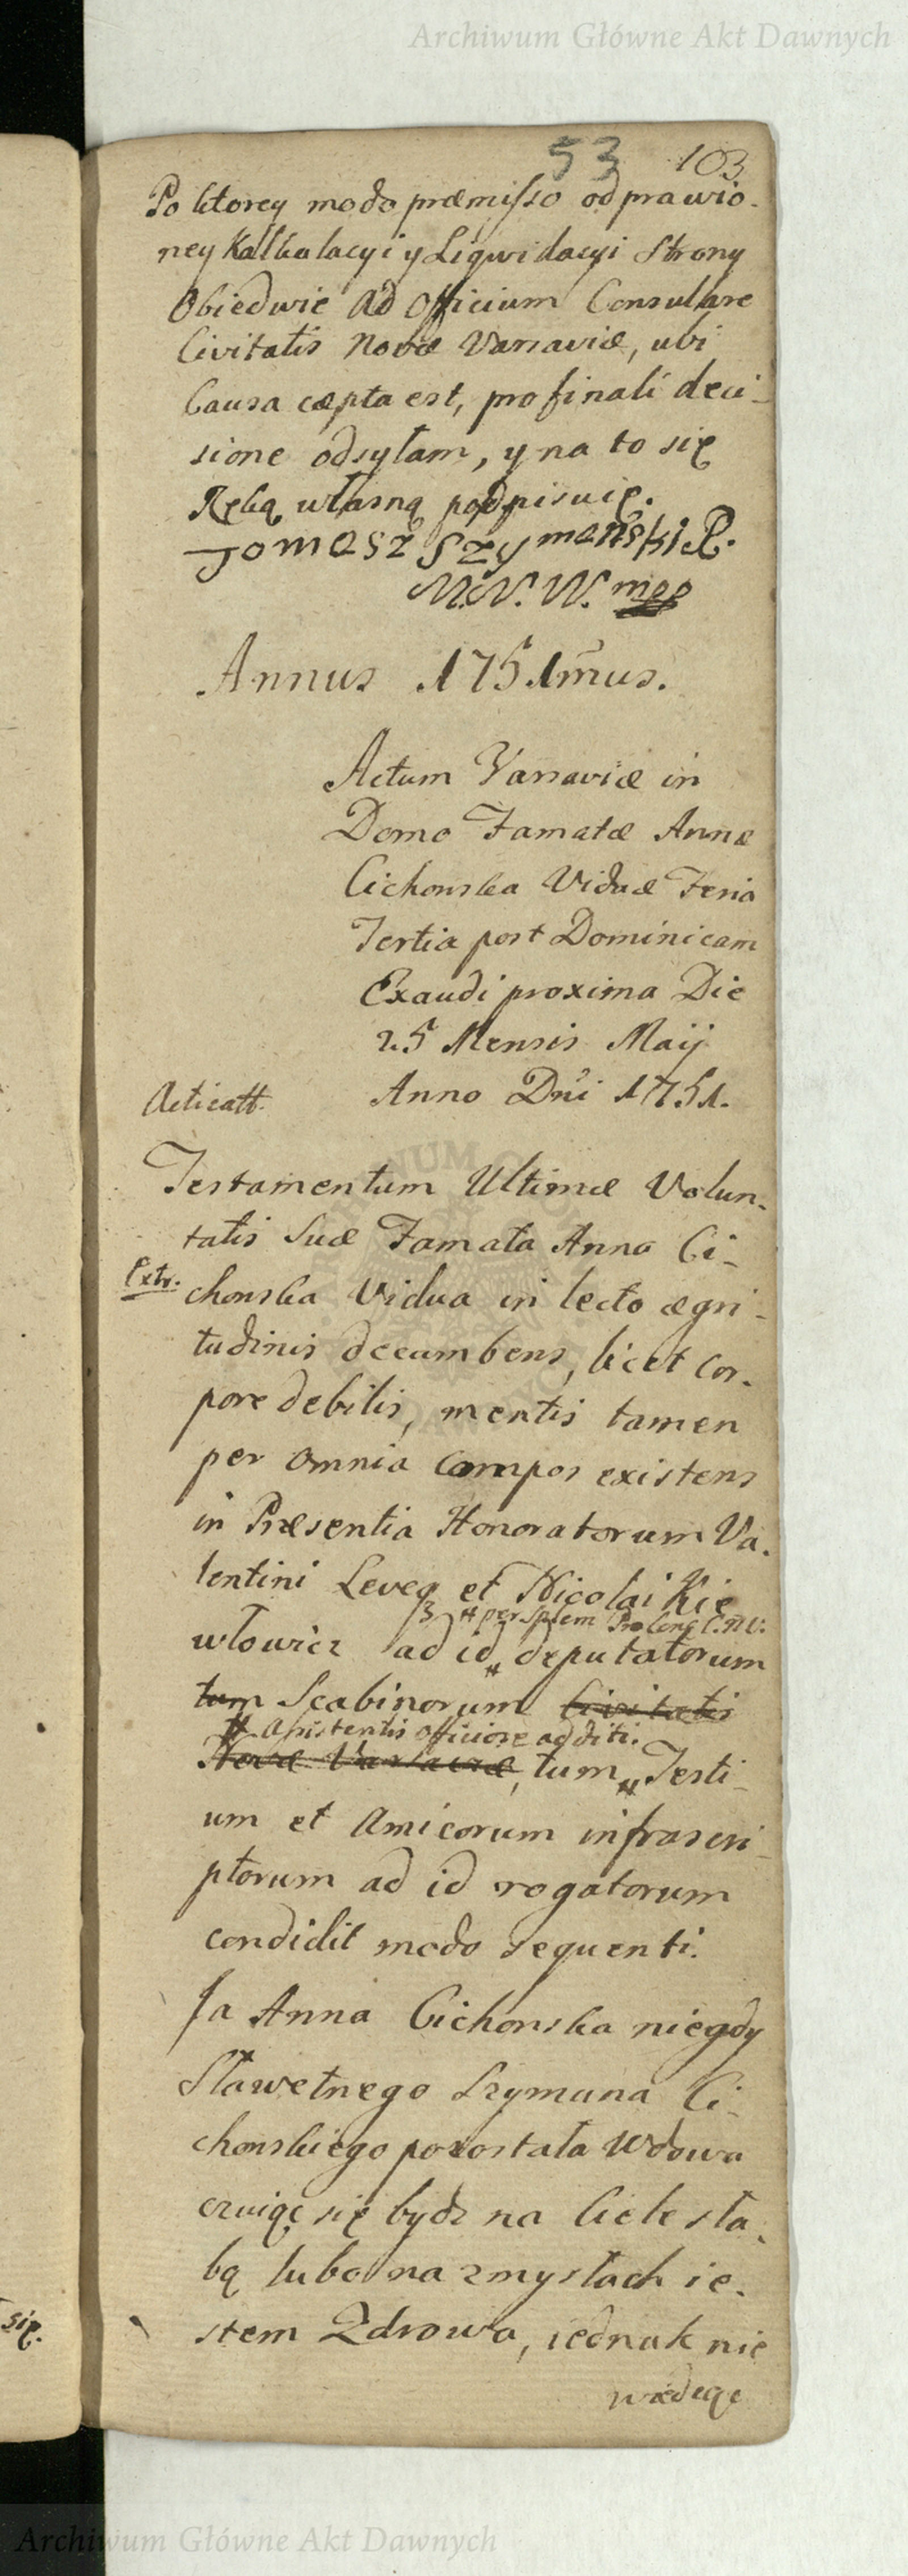 Archiwum Główne Akt Dawnych
53 103
Po ktorey modo præmisso odprawio-
ney Kalkulacyi y Liqwidacyi Strony
Obiedwie Ad Officium Consulare
Civitatis Novæ Varsaviæ, ubi
Causa cæpta est, pro finali deci-
sione odsyłam, y na to się
Ręką własną podpisuię.
Tomasz Szymański P.
M. N. W. mpp
Annus 1751mus.
Actum Varsaviæ in
Domo Famatæ Annæ
Cichonska Viduæ Feria
Tertia post Dominicam
Exaudi proxima Die
25 Mensis Maij
Anno Dni 1751.
Acticatt.
Testamentum Ultimæ Volun-
tatis Suæ Famata Anna Ci-
Extr.
chonska Vidua in lecto ægri-
tudinis decumbens, licet cor-
pore debilis, mentis tamen
per omnia compos existens
in Præsentia Honoratorum Va-
lentini Leveq et Nicolai Kie
# per Sptem C.N.V.
włowicz ad id # deputatorum
tum Scabinorum Civitatis
# Assistentis officiose additi.
Novæ Varsaviæ, tum # Testi-
um et Amicorum infrascri-
ptorum ad id rogatorum
condidit modo sequenti.
Ja Anna Cichonska niegdy
Sławetnego Szymuna Ci-
chonskiego pozostała Wdowa
czuiąc się bydz na Ciele sła-
bą lubo na zmysłach ie-
stem Zdrowa, iednak nie
się.
Archiwum Główne Akt Dawnych